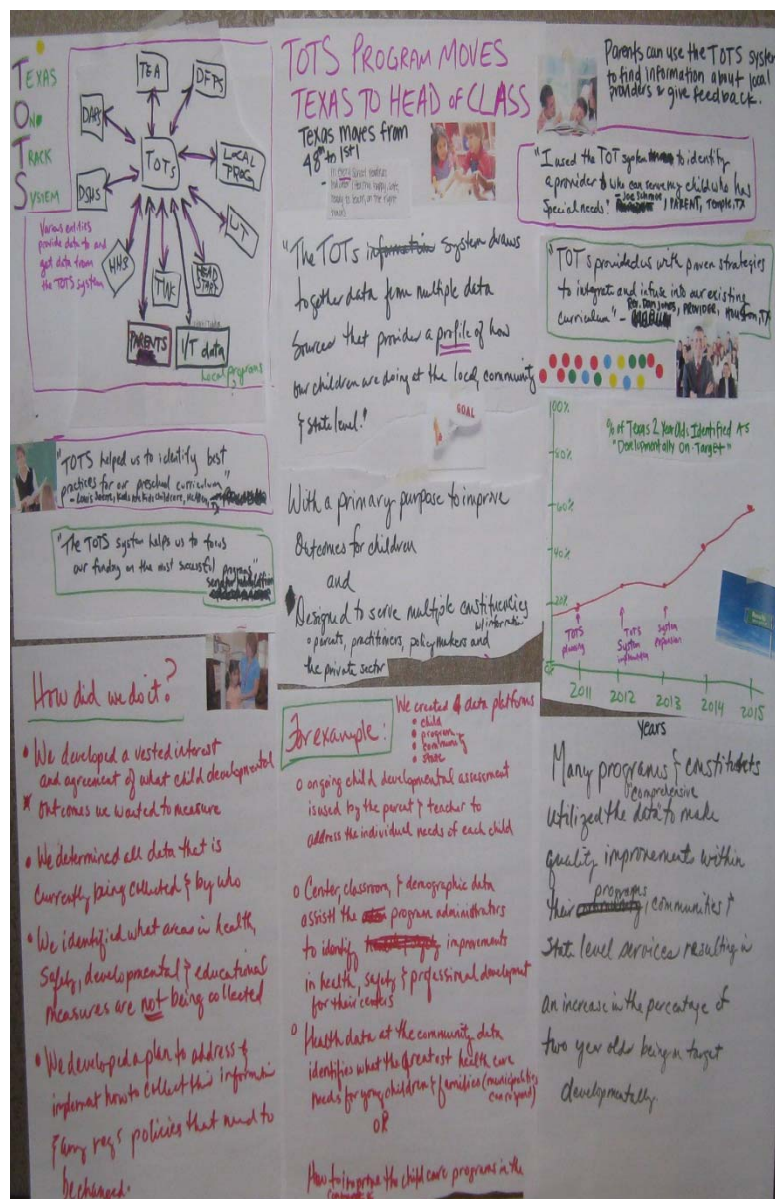 TEXAS
ON
TRACK
SYSTEM
TEA
DFPS
DARS
TOTs
LOCAL
PROG.
DSHS
UT
HHS
TWC
HEAD
START
PARENTS
I/T data
Local programs
Various entities
provide data to and
get data from
the TOTS system
"TOTS helped us to identify best
practices for our preschool curriculum"
"The TOTS system helps us to focus
our funding on the most successful programs"
TOTS PROGRAM MOVES
TEXAS TO HEAD of CLASS
Texas moves from
48th to 1st!
"The TOTs information System draws
together data from multiple data
sources that provider a profile of how
our children are doing at the local, community
& state level."
GOAL
With a primary purpose to improve
Outcomes for children
and
Designed to serve multiple constituencies
parents, practitioners, policymakers and
the private sector
Parents can use the TOTS system
to find information about local
providers & give feedback.
"I used the TOT system to identify
a provider who can serve my child who has
Special needs" , PARENT, Temple, TX
"TOTs provided us with proven strategies
to integrate and infuse into our existing
curriculum" - PROVIDER, Houston, TX
% of Texas 2 Year Olds Identified As
"Developmentally On-Target"
100%
80%
60%
40%
20%
0%
TOTS
planning
TOTS
System
implementation
System
expansion
2011
2012
2013
2014
2015
years
How did we do it?
• We developed a vested interest
and agreement of what child developmental
* outcomes we wanted to measure
• We determined all data that is
currently being collected & by who
• We identified what areas in health,
Safety, developmental & educational
measures are not being collected
• We developed a plan to address &
implement how to collect this information
& any regs policies that need to
be changed.
For example:
We created 4 data platforms
• child
• program
• community
• state
o ongoing child developmental assessment
is used by the parent & teacher to
address the individual needs of each child
o Center, classroom, & demographic data
assist the program administrators
to identify improvements
in health, safety & professional development
for their centers
o Health data at the community data
identifies what the greatest health care
needs for young children & families (municipalities
can respond)
OR
How to improve the child care programs in the
Many programs & constituents
utilized the comprehensive data to make
quality improvements within
their programs, communities &
State level services resulting in
an increase in the percentage of
two year olds being on target
developmentally.